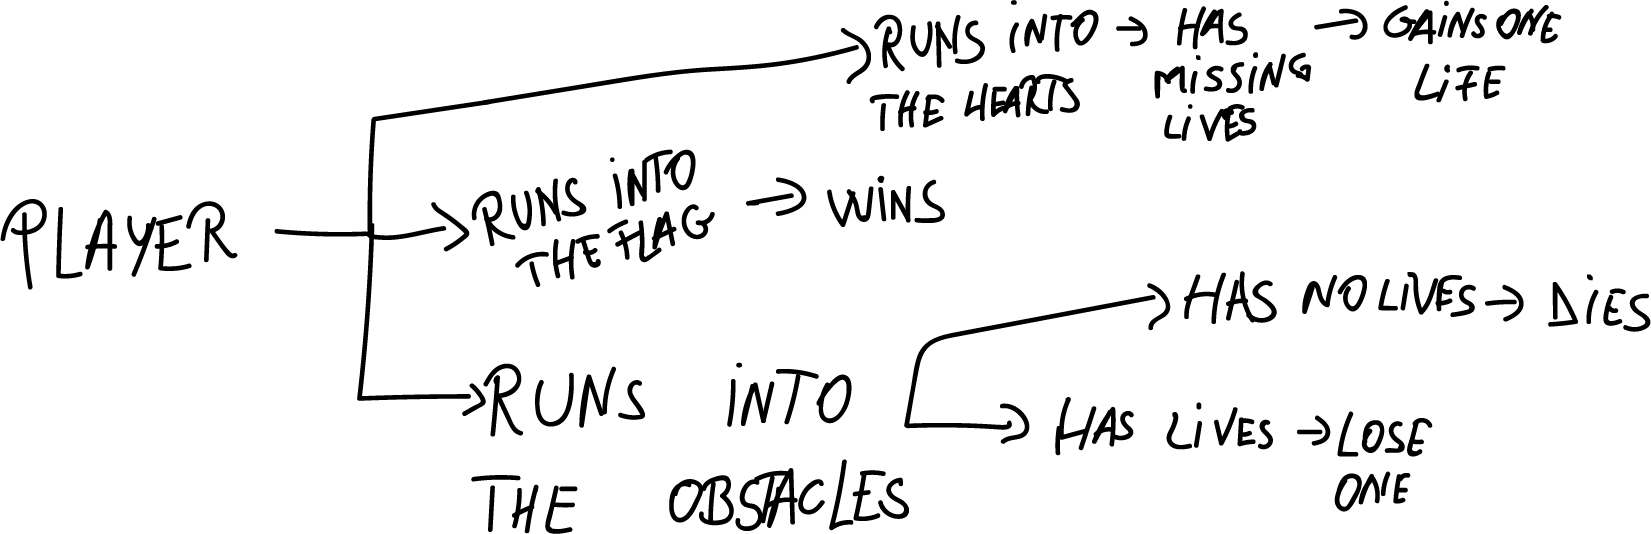 PLAYER
RUNS INTO
THE HEARTS
HAS
MISSING
LIVES
GAINS ONE
LIFE
RUNS INTO
THE FLAG
WINS
RUNS INTO
THE OBSTACLES
HAS NO LIVES
DIES
HAS LIVES
LOSE
ONE